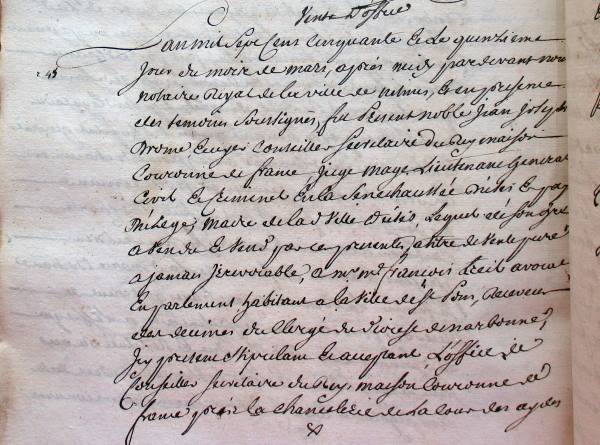 Vente d'office
245
L'an mil sept cent cinquante et le quinzieme
jour du mois de mars, après midy pardevant nous
notaire Royal de la ville de nismes, et en presence
des temoins soussignés, fut présent noble Jean Joseph
Ecuyer Conseiller Secretaire du Roy maison
Couronne de france, juge mage, Lieutenant General
Civil et Criminel En la Senechaussée
maire de la d. ville Lequel de son gré
a vendu et vend par ces presentes, a titre de vente pure
a jamais irrevocable, a mr. me. françois avocat
En parlement habitant a la ville de st. Pons, Receveur
des decimes du Clergé du diocese de narbonne,
Icy present stipulant et acceptant, L'office de
Conseiller secretaire du Roy, maison Couronne de
france près la Chancelerie de la Cour des aydes